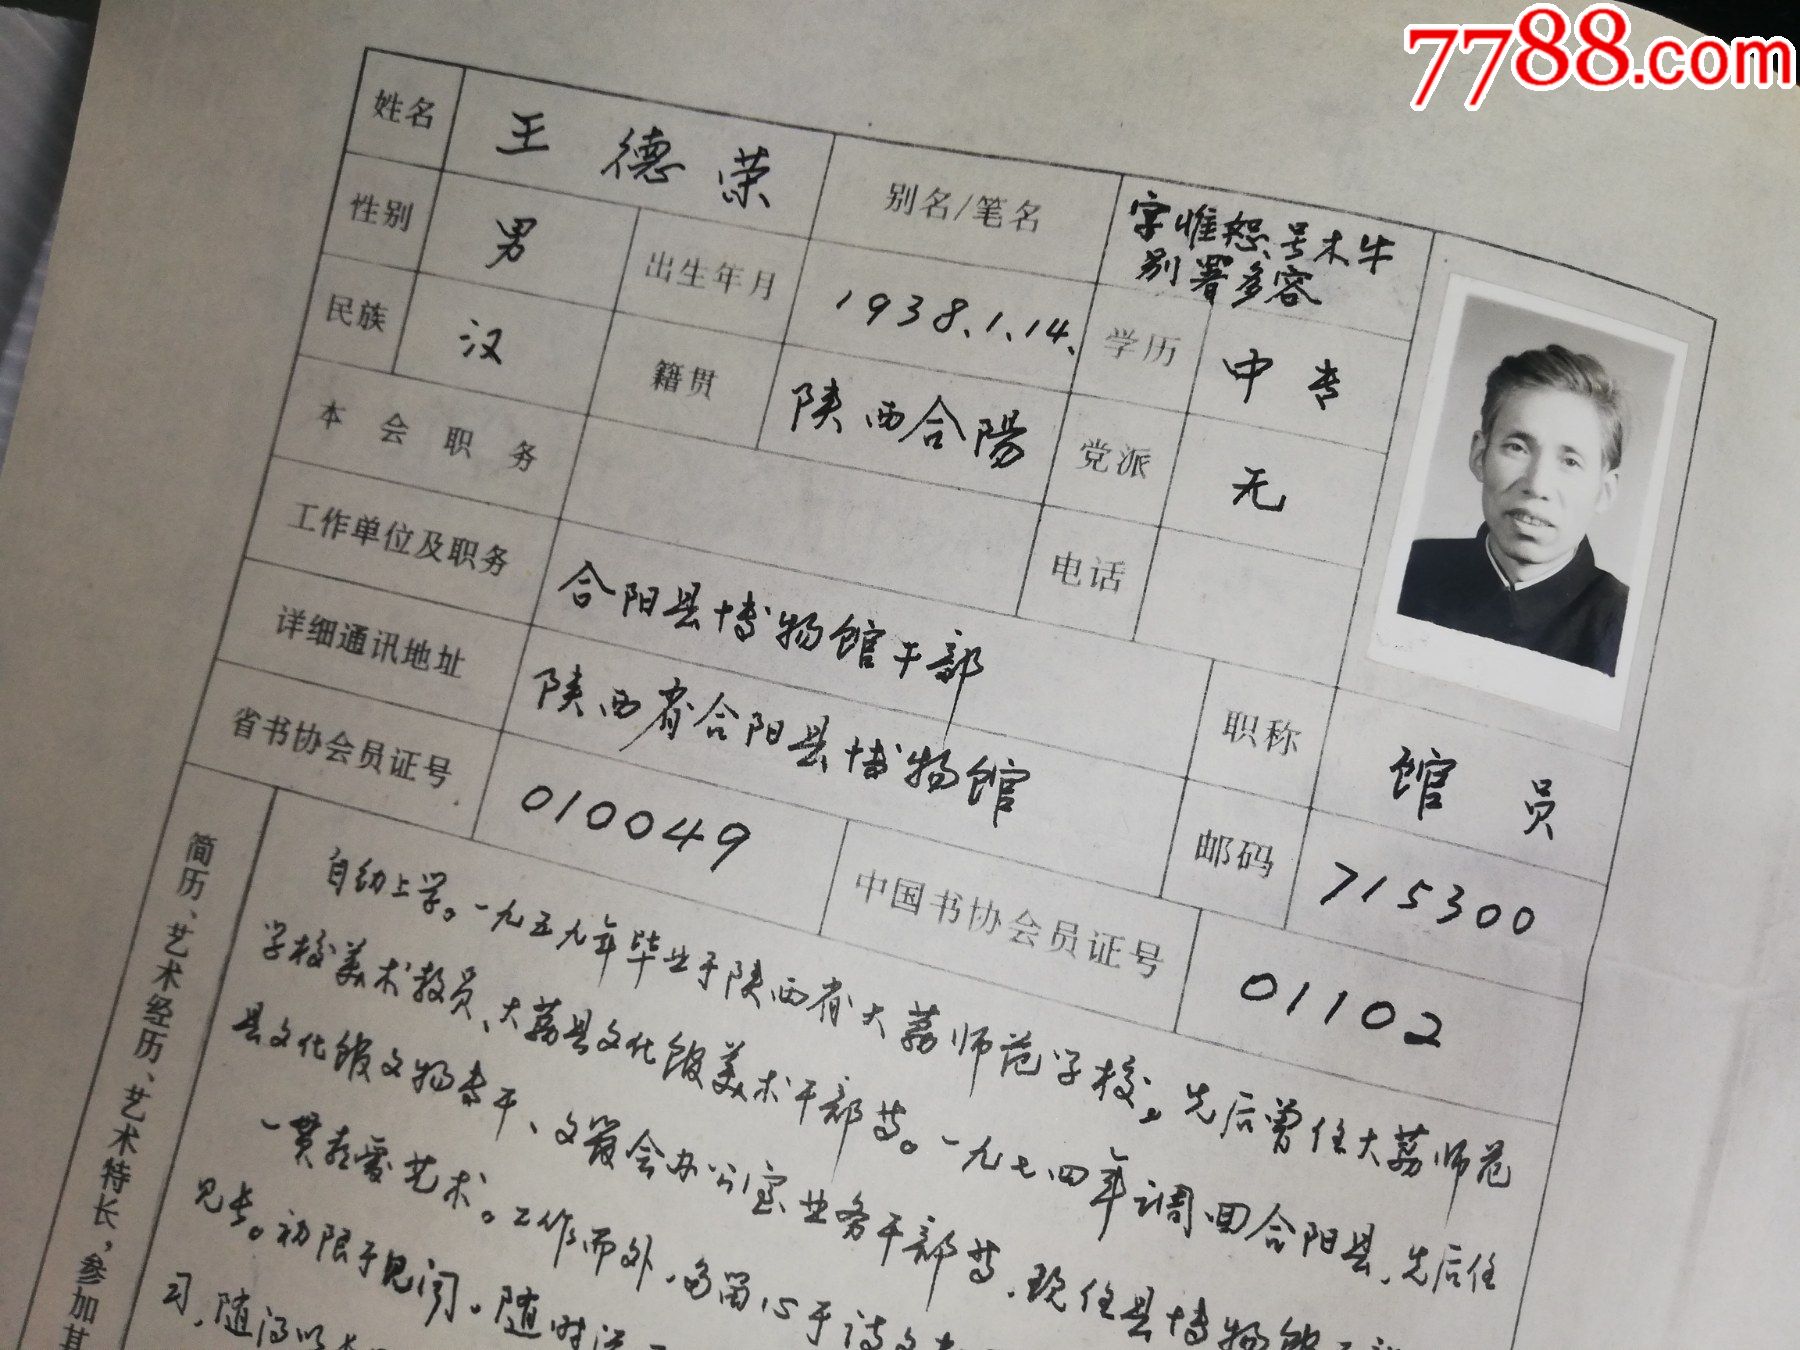 7788.com
姓名 王德荣 别名/笔名 字惟恕、号木牛
别署多容
性别 男 出生年月 1938.1.14. 学历 中专
民族 汉 籍贯 陕西合陽 党派 无
本会职务 电话
工作单位及职务 合阳县博物馆干部 职称 馆员
详细通讯地址 陕西省合阳县博物馆 邮码 715300
省书协会员证号 010049 中国书协会员证号 01102
简历、艺术经历、艺术特长,参加其
自幼上学。一九五九年毕业于陕西省大荔师范学校。先后曾任大荔师范
学校美术教员、大荔县文化馆美术干部等。一九七四年调回合阳县,先后任
县文化馆文物专干、文管会办公室业务干部等,现任县博物馆
一贯志爱艺术。工作而外,多留心于诗文
见长。初限于见闻。随时
习,随